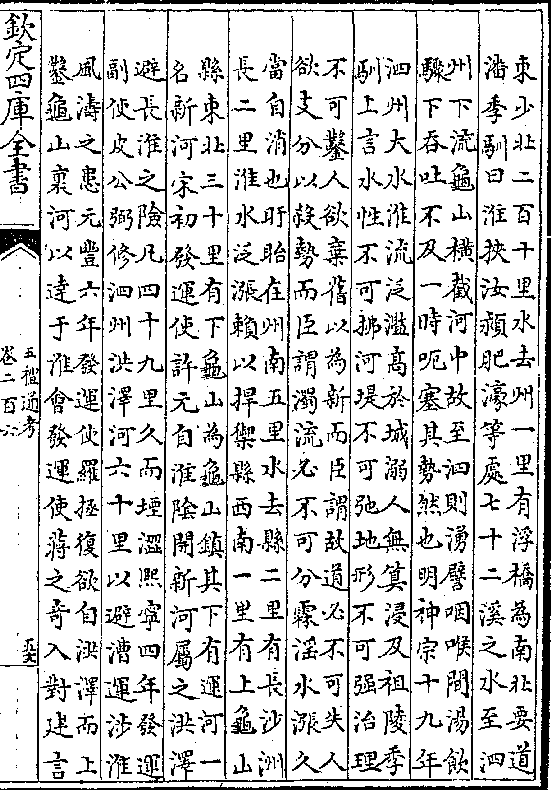 東少北二百十里水去州一里有浮橋為南北要道
潘季馴曰淮挾汝潁肥濠等處七十二溪之水至泗
州下流龜山橫截河中故至泗則湧譬咽喉間湯飲
驟下吞吐不及一時呃塞其勢然也明神宗十九年
泗州大水淮流泛濫高於城溺人無筭浸及祖陵季
馴上言水性不可拂河堤不可弛地形不可强治理
不可鑿人欲棄舊以為新而臣謂故道必不可失人
欲支分以殺勢而臣謂濁流必不可分霖滛水漲久
當自消也盱眙在州南五里水去縣二里有長沙洲
長二里淮水泛漲賴以捍禦縣西南一里有上龜山
縣東北三十里有下龜山為龜山鎮其下有運河一
名新河宋初發運使許元自淮陰開新河屬之洪澤
避長淮之險凡四十九里久而堙澀熙寧四年發運
副使皮公弼修泗州洪澤河六十里以避漕運涉淮
風濤之患元豐六年發運使羅拯復欲自洪澤而上
鑿龜山裏河以達于淮會發運使蔣之奇入對建言
欽定四庫全書
五禮通考
卷二百六